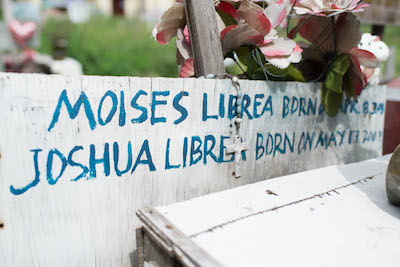 MOISES LIBREA BORN APR. 8,
JOSHUA LIBREA BORN ON MAY 13